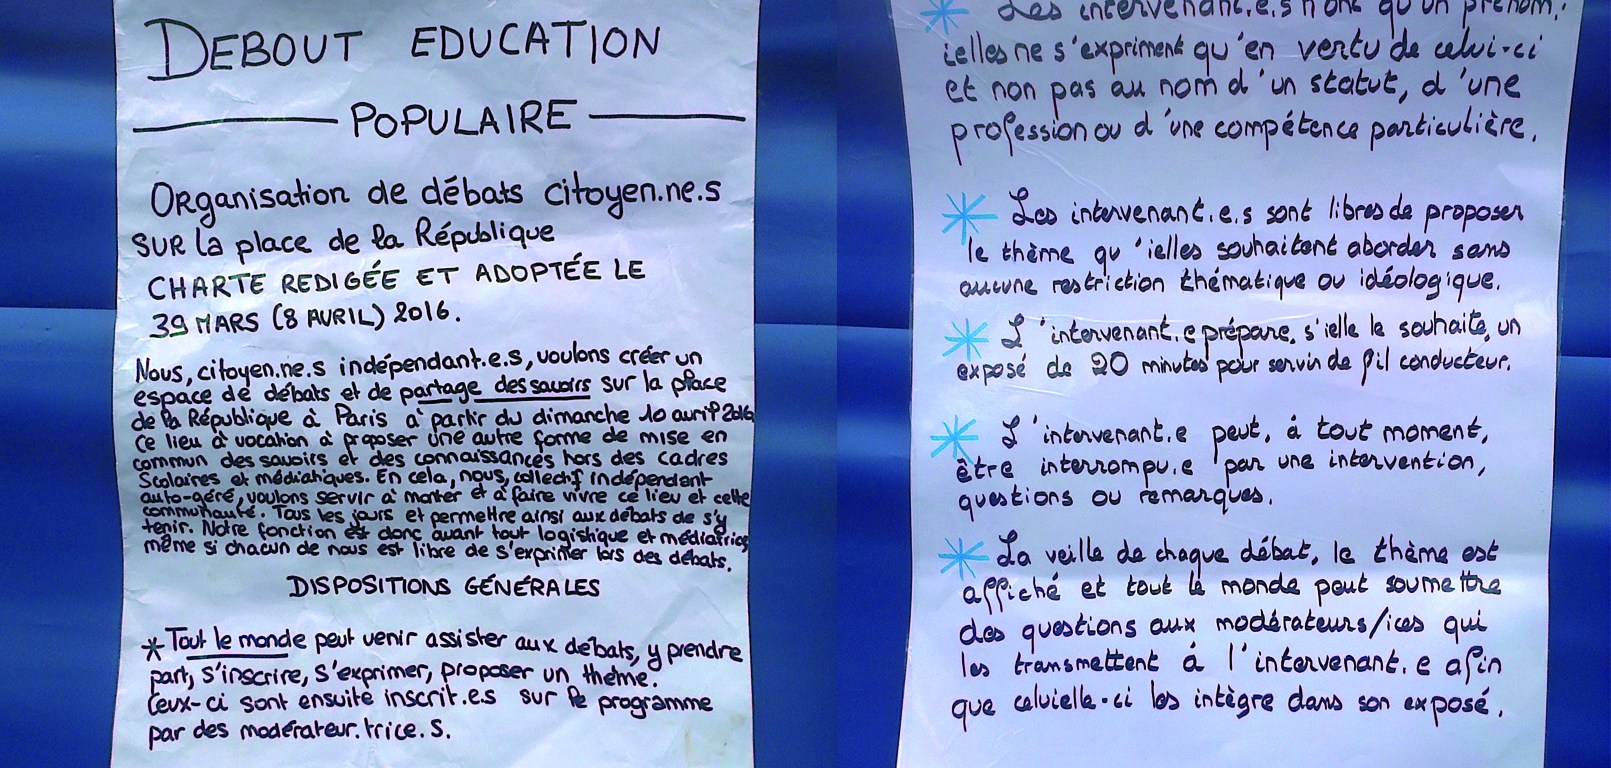 DEBOUT EDUCATION
POPULAIRE
Organisation de débats citoyen.ne.s
SUR la place de la République
CHARTE REDIGÉE ET ADOPTÉE LE
39 MARS (8 AVRIL) 2016.
Nous, citoyen.ne.s indépendant.e.s, voulons créer un
espace de débats et de partage des savoirs sur la place
de la République à Paris à partir du dimanche 10 avril 2016
Ce lieu à vocation à proposer une autre forme de mise en
commun des savoirs et des connaissances hors des cadres
Scolaires et médiatiques. En cela, nous, collectif indépendant
auto-géré, voulons servir à monter et à faire vivre ce lieu et cette
communauté. Tous les jours et permettre ainsi aux débats de s'y
tenir. Notre fonction est donc avant tout logistique et médiatrice
même si chacun de nous est libre de s'exprimer lors des débats.
DISPOSITIONS GÉNÉRALES
* Tout le monde peut venir assister aux débats, y prendre
part, s'inscrire, s'exprimer, proposer un thème.
Ceux-ci sont ensuite inscrit.e.s sur le programme
par des modérateur.trice.s.
* Les intervenant.e.s n'ont qu'un prénom.
ielles ne s'expriment qu'en vertu de celui-ci
et non pas au nom d'un statut, d'une
profession ou d'une compétence particulière.
* Les intervenant.e.s sont libres de proposer
le thème qu'ielles souhaitent aborder sans
aucune restriction thématique ou idéologique.
* L'intervenant.e prépare, s'ielle le souhaite, un
exposé de 20 minutes pour servir de fil conducteur.
* L'intervenant.e peut, à tout moment,
être interrompu.e par une intervention,
questions ou remarques.
* La veille de chaque débat, le thème est
affiché et tout le monde peut soumettre
des questions aux modérateurs/ices qui
les transmettent à l'intervenant.e afin
que celuielle-ci les intègre dans son exposé.